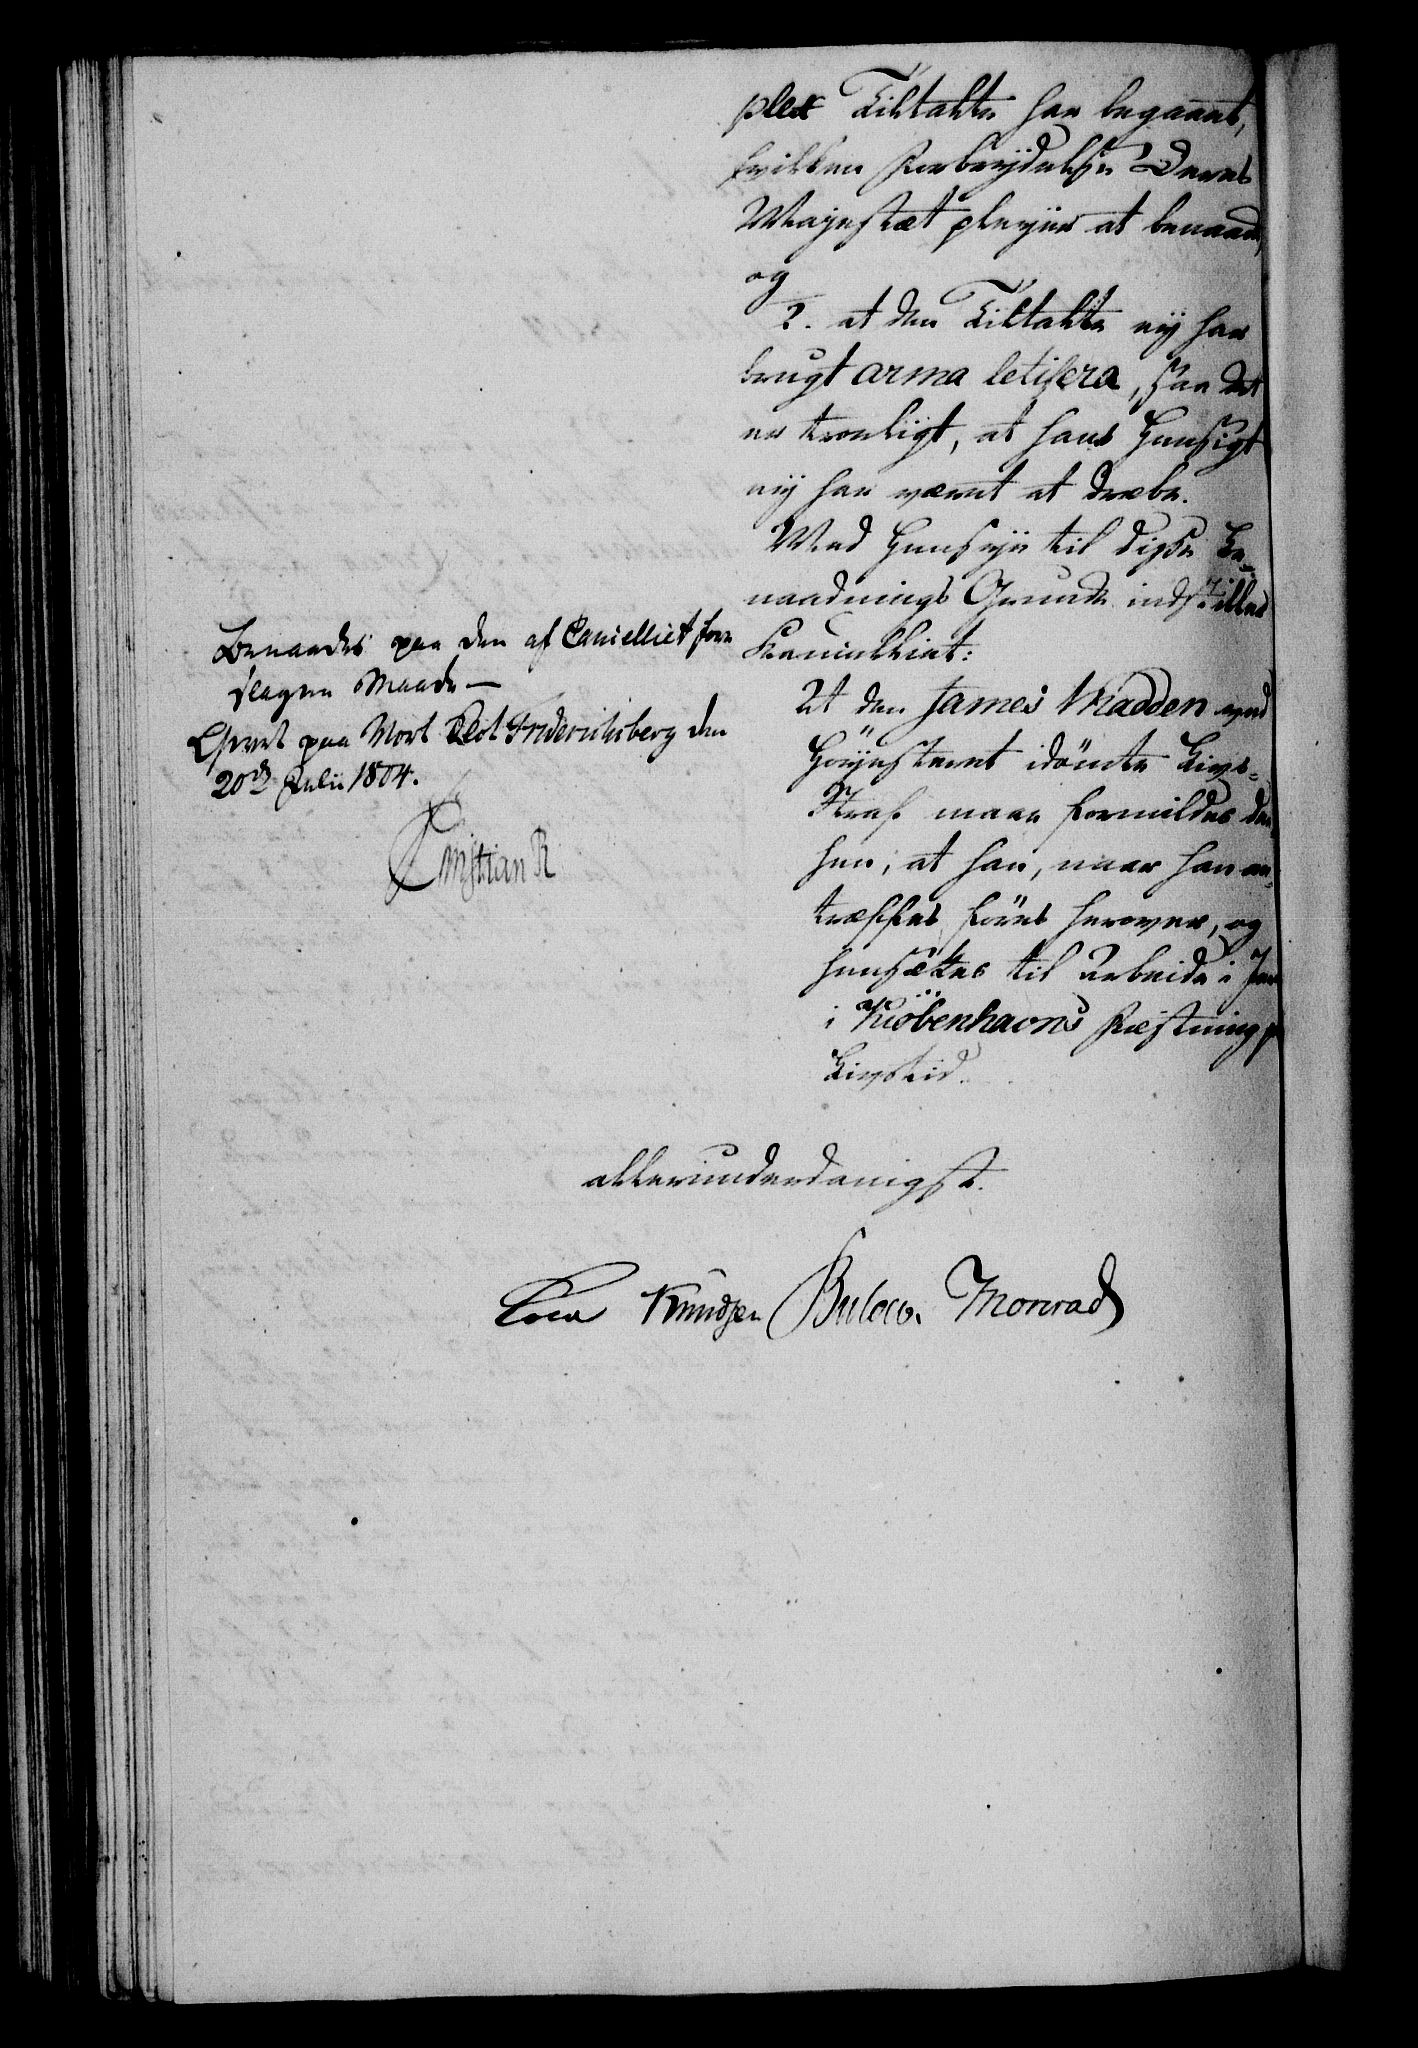 plex Tiltalte har begaaet,
hvilken Forbrydelse Deres
Majestæt pleyer at benaade,
og
2. at den Tiltalte ey har
brugt arma letifera, saa det
er troeligt, at hans Hensigt
ey har været at dræbe.
Med Hensyn til disse Be-
naadnings Grunde indstilles
Kancelliet:
At den James Madden ved
Höyesteret idömte Livs-
Straf maae formildes der-
hen, at han, naar han an-
træffes, föres herover, og
hensættes til Arbeide i Jern
i Kiöbenhavns Fæstning p
Livstid.
Benaades paa den af Cancelliet fore
slagne Maade —
Givet paa Vort Slot Friderichsberg den
20de Julii 1804.
Christian R
allerunderdanigst.
Knudsen Bülow. Monrad